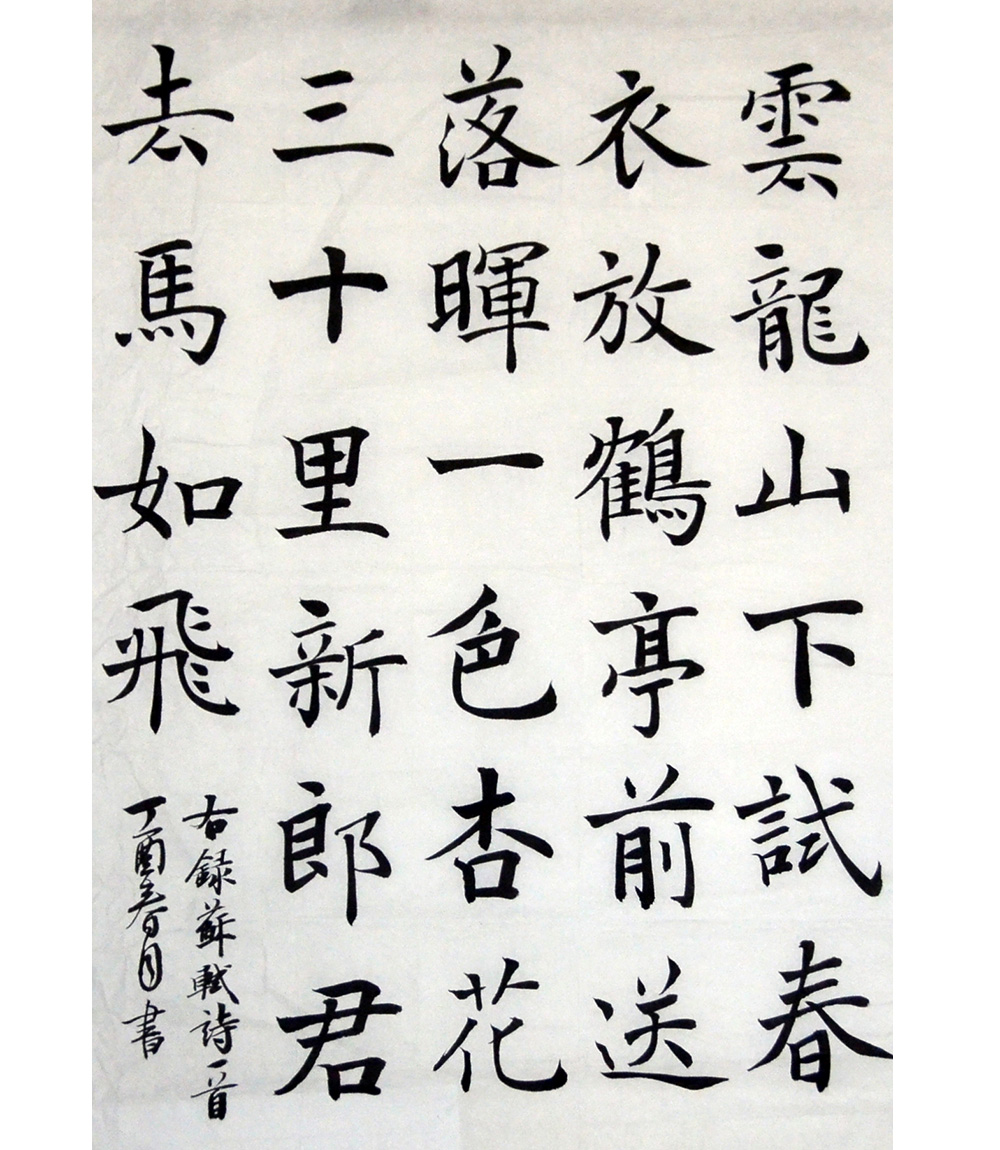 雲龍山下試春
衣放鶴亭前送
落暉一色杏花
三十里新郎君
去馬如飛
右録蘇軾詩一首
丁酉春月書